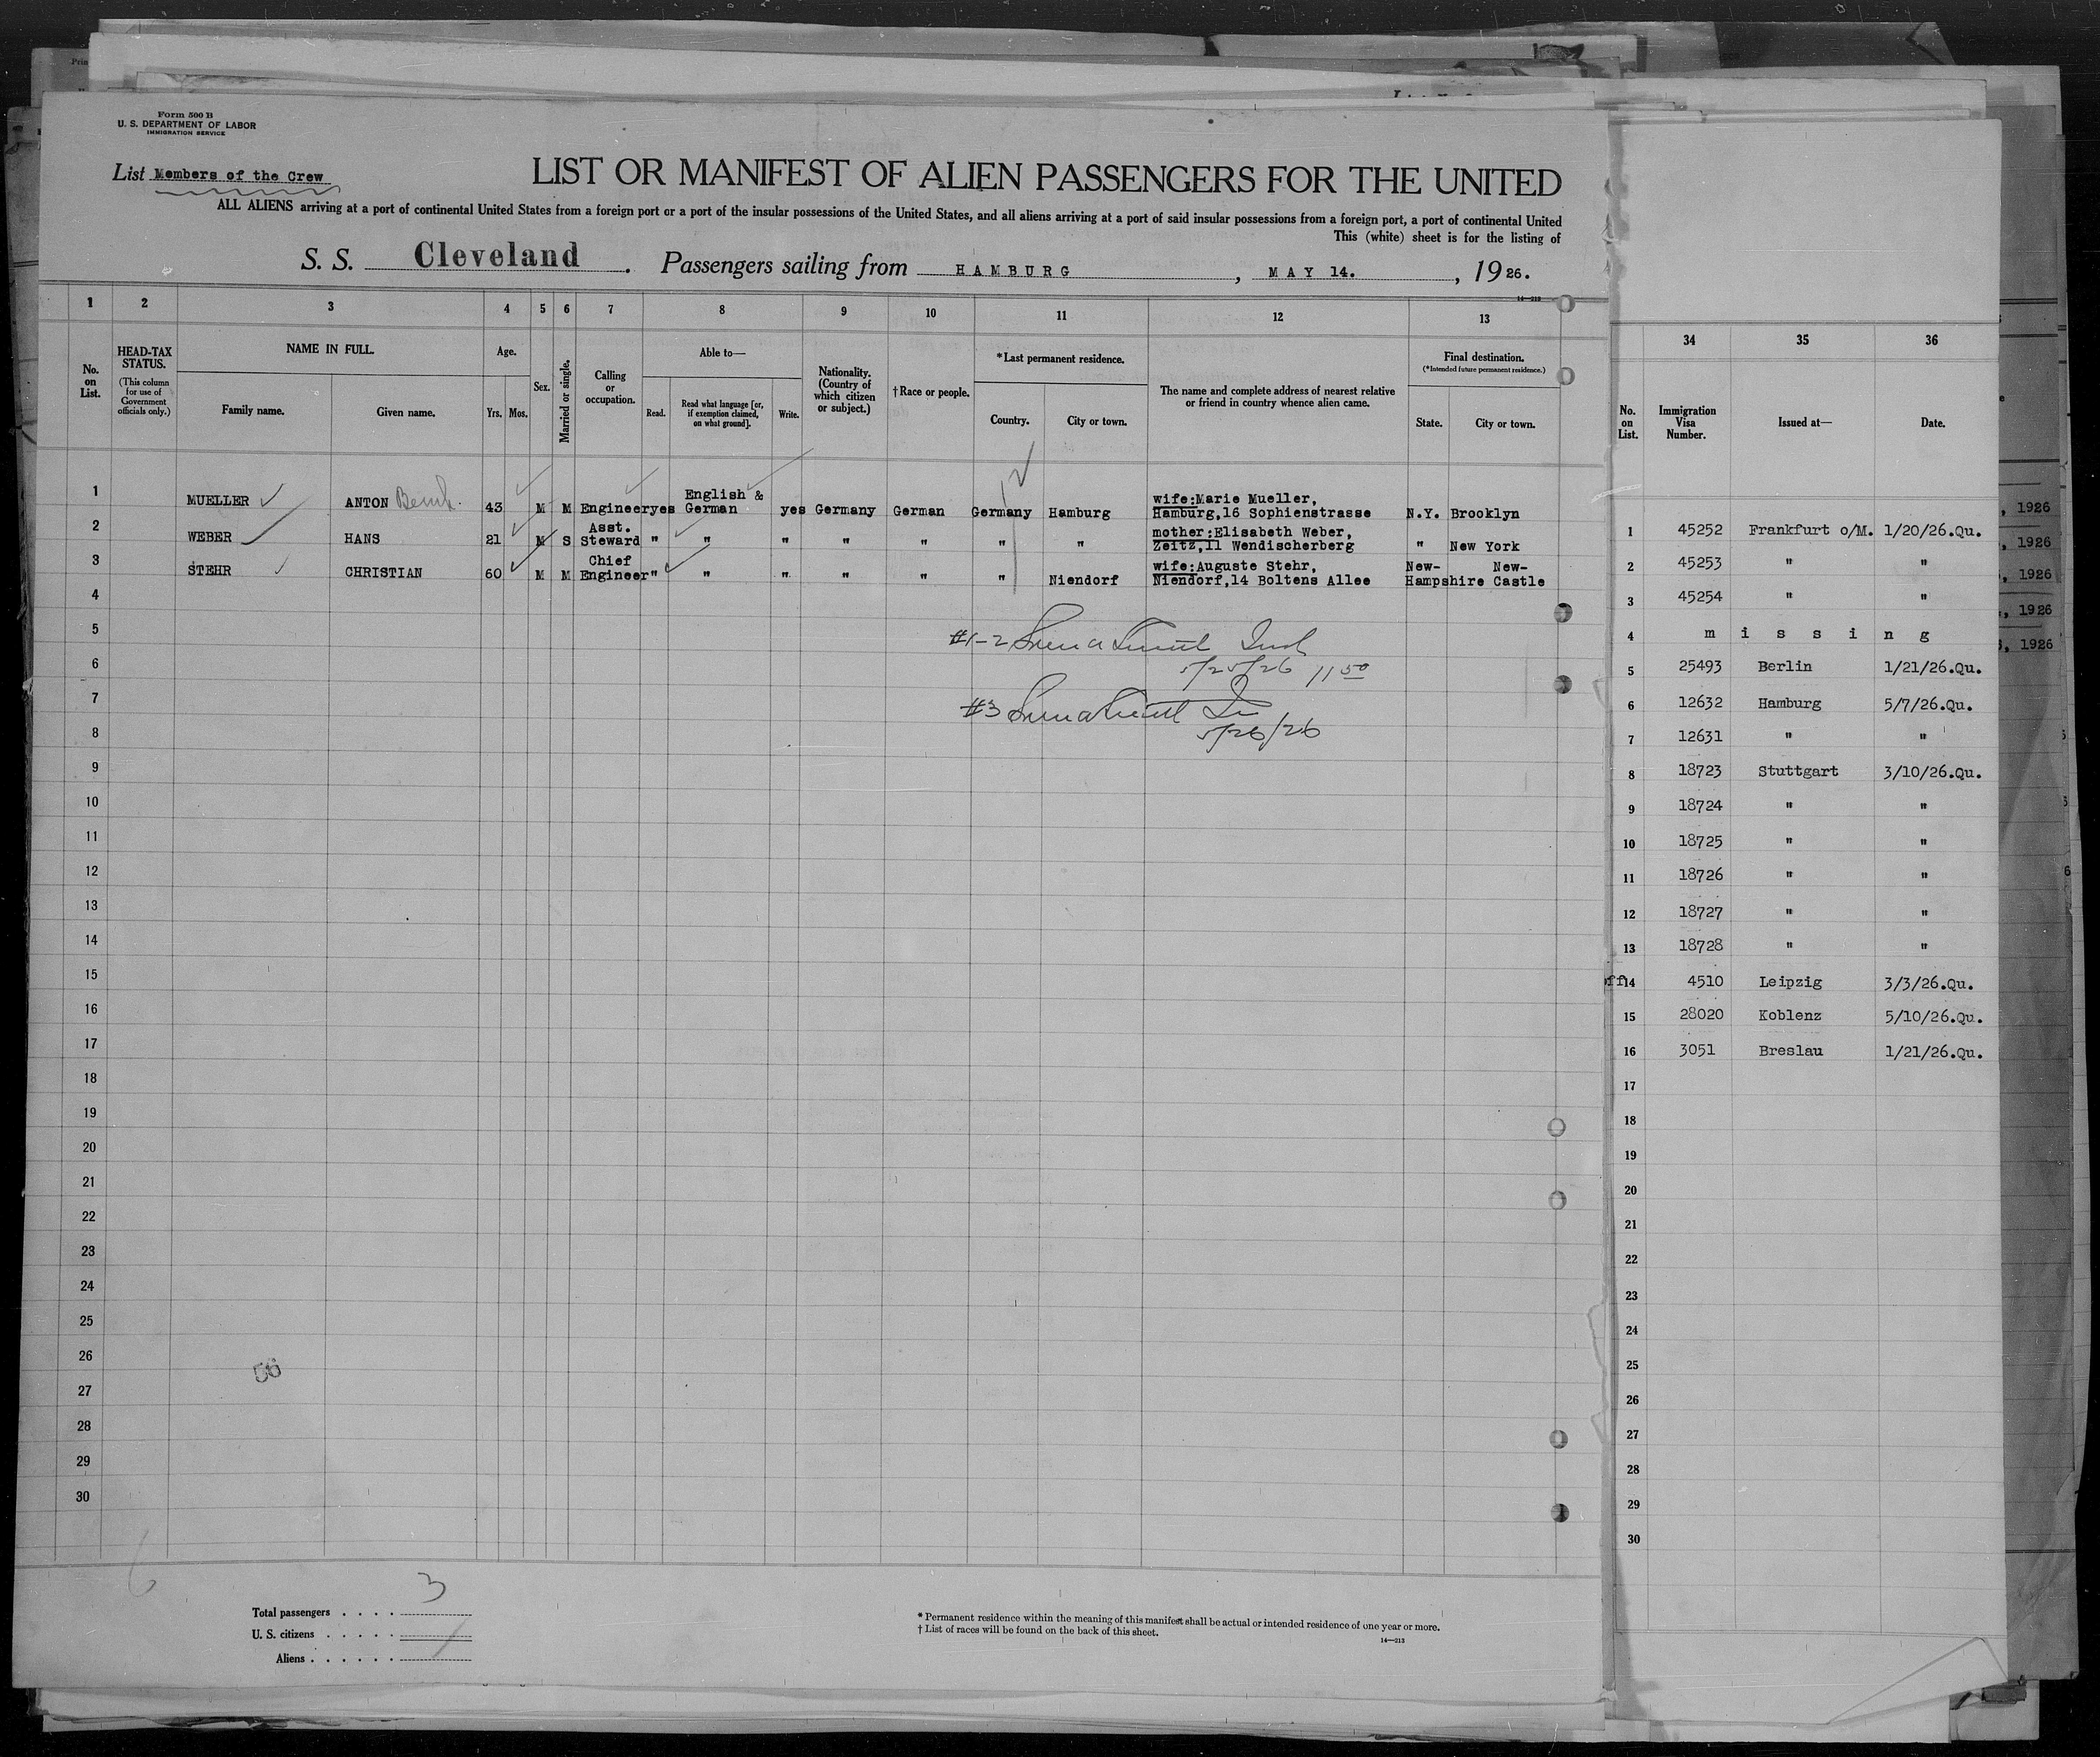 Form 500 B
U. S. DEPARTMENT OF LABOR
IMMIGRATION SERVICE
List Members of the Crew
LIST OR MANIFEST OF ALIEN PASSENGERS FOR THE UNITED
ALL ALIENS arriving at a port of continental United States from a foreign port or a port of the insular possessions of the United States, and all aliens arriving at a port of said insular possessions from a foreign port, a port of continental United
This (white) sheet is for the listing of
S. S. Cleveland. Passengers sailing from HAMBURG, MAY 14., 1926.
14—213
1 2 3 4 5 6 7 8 9 10 11 12 13
No. on List.
HEAD-TAX STATUS.
(This column for use of Government officials only.)
NAME IN FULL.
Family name. Given name.
Age.
Yrs. Mos.
Sex.
Married or single.
Calling or occupation.
Able to—
Read. Read what language [or, if exemption claimed, on what ground]. Write.
Nationality. (Country of which citizen or subject.)
† Race or people.
* Last permanent residence.
Country. City or town.
The name and complete address of nearest relative or friend in country whence alien came.
Final destination.
(* Intended future permanent residence.)
State. City or town.
1 MUELLER ANTON 43 M M Engineer yes English & German yes Germany German Germany Hamburg wife:Marie Mueller, Hamburg,16 Sophienstrasse N.Y. Brooklyn
2 WEBER HANS 21 M S Asst. Steward " " " " " " " mother:Elisabeth Weber, Zeitz,11 Wendischerberg " New York
3 STEHR CHRISTIAN 60 M M Chief Engineer " " " " " " Niendorf wife:Auguste Stehr, Niendorf,14 Boltens Allee New-Hampshire New-Castle
4
5
#1-2
6
5/25/26 11 50
7
#3
8
5/26/26
9
10
11
12
13
14
15
16
17
18
19
20
21
22
23
24
25
26
56
27
28
29
30
6
3
Total passengers . . . .
U. S. citizens . . . . .
Aliens . . . . . .
* Permanent residence within the meaning of this manifest shall be actual or intended residence of one year or more.
† List of races will be found on the back of this sheet.
14—213
34 35 36
No. on List.
Immigration Visa Number.
Issued at—
Date.
1 45252 Frankfurt o/M. 1/20/26.Qu.
2 45253 " "
3 45254 " "
4 m i s s i n g
5 25493 Berlin 1/21/26.Qu.
6 12632 Hamburg 5/7/26.Qu.
7 12631 " "
8 18723 Stuttgart 3/10/26.Qu.
9 18724 " "
10 18725 " "
11 18726 " "
12 18727 " "
13 18728 " "
14 4510 Leipzig 3/3/26.Qu.
15 28020 Koblenz 5/10/26.Qu.
16 3051 Breslau 1/21/26.Qu.
17
18
19
20
21
22
23
24
25
26
27
28
29
30
, 1926
, 1926
, 1926
, 1926
, 1926